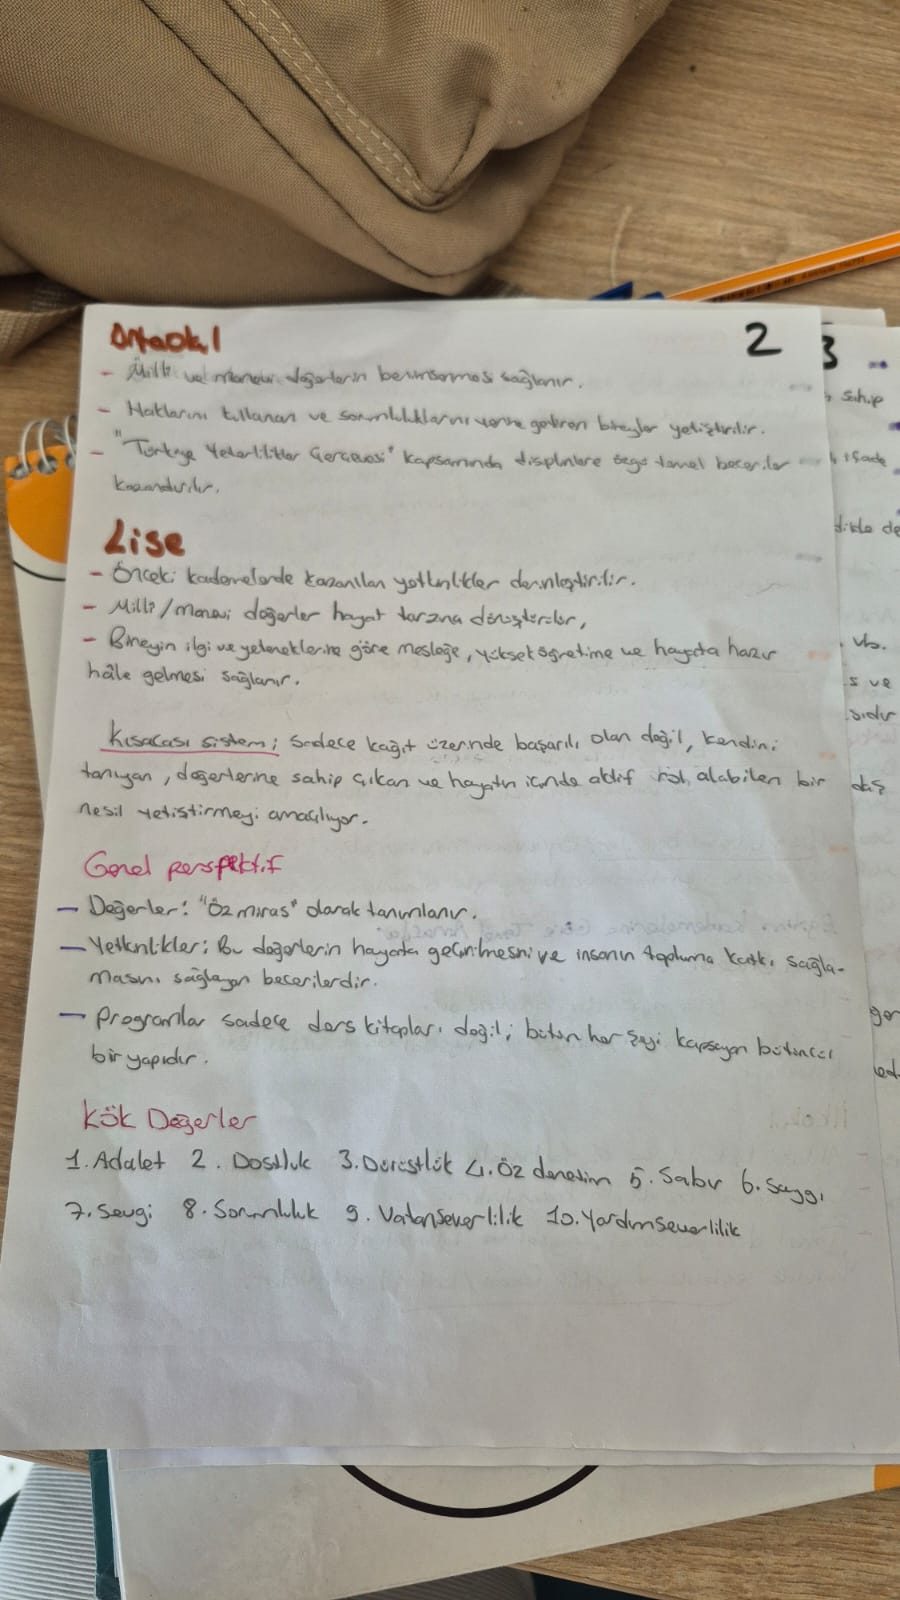 Ortaokul
2
3
- Milli ve manevi değerlerin benimsenmesi sağlanır.
- Haklarını kullanan ve sorumluluklarını yerine getiren bireyler yetiştirilir.
- "Türkiye Yeterlilikler Çerçevesi" kapsamında disiplinlere özgü temel beceriler
kazandırılır.
Lise
- Önceki kademelerde kazanılan yetkinlikler derinleştirilir.
- Milli/Manevi değerler hayat tarzına dönüştürülür,
- Bireyin ilgi ve yeteneklerine göre mesleğe, yükseköğretime ve hayata hazır
hâle gelmesi sağlanır.
Kısacası sistem; sadece kağıt üzerinde başarılı olan değil, kendini
tanıyan, değerlerine sahip çıkan ve hayatın içinde aktif rol alabilen bir
nesil yetiştirmeyi amaçlıyor.
Genel perspektif
- Değerler: "Öz miras" olarak tanımlanır.
- Yetkinlikler: Bu değerlerin hayata geçirilmesini ve insanın topluma katkı sağla-
masını sağlayan becerilerdir.
- Programlar sadece ders kitapları değil; bütün her şeyi kapsayan bütüncül
bir yapıdır.
Kök Değerler
1. Adalet 2. Dostluk 3. Dürüstlük 4. Öz denetim 5. Sabır 6. Saygı
7. Sevgi 8. Sorumluluk 9. Vatanseverlilik 10. Yardımseverlilik
sahip
ifade
vb.
ve